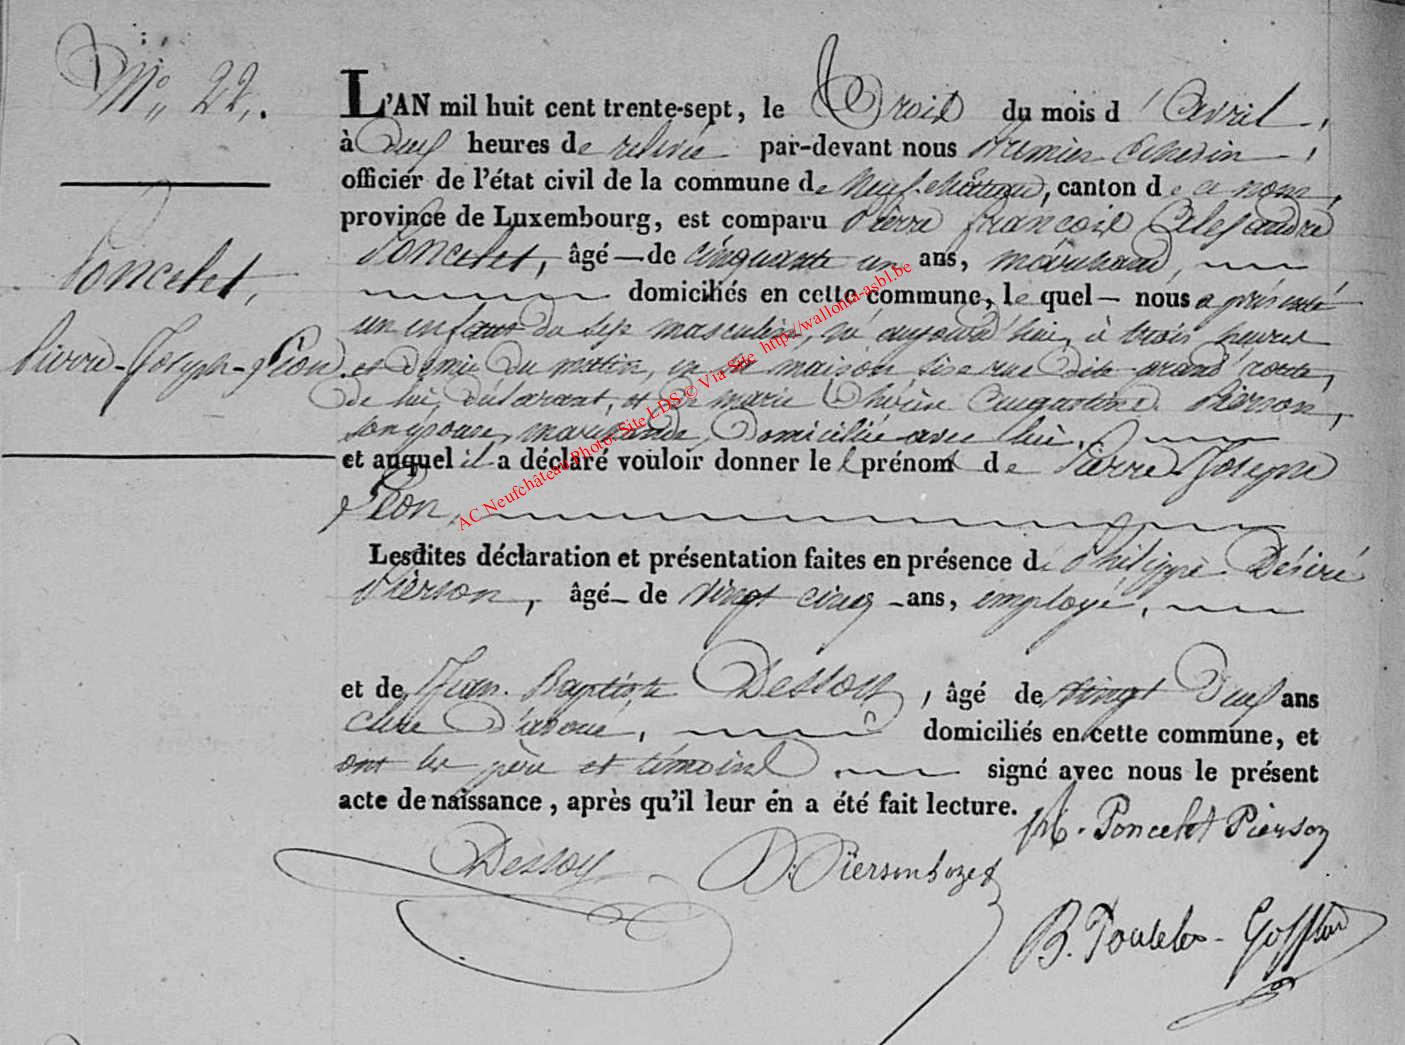 N° 22.
L'AN mil huit cent trente-sept, le Trois du mois d'avril,
à deux heures de relevée par-devant nous premier Echevin,
officier de l'état civil de la commune de Neufchâteau, canton de ce nom,
province de Luxembourg, est comparu Pierre François Alexandre
Poncelet, âgé de cinquante un ans, marchand,
domiciliés en cette commune, le quel nous a présenté
un enfant du sexe masculin, né aujourd'hui, à trois heures
et demie du matin, en sa maison, sise rue dite grand'route,
de lui, déclarant, et de marie Thérèse Augustine Pierson,
son épouse, marchande, domiciliée avec lui,
et auquel il a déclaré vouloir donner les prénoms de Pierre-Joseph
Léon.
Poncelet,
Pierre-Joseph-Léon.
Lesdites déclaration et présentation faites en présence de Philippe Désiré
Pierson, âgé de vingt cinq ans, employé,
et de Jean Baptiste Dessoy, âgé de vingt deux ans
clerc d'avoué, domiciliés en cette commune, et
ont les père et témoins signé avec nous le présent
acte de naissance, après qu'il leur en a été fait lecture.
Poncelet Pierson
Dessoy
D. Pierson
B.
AC Neufchâteau Photo: Site LDS © Via Site http://wallonia-asbl.be